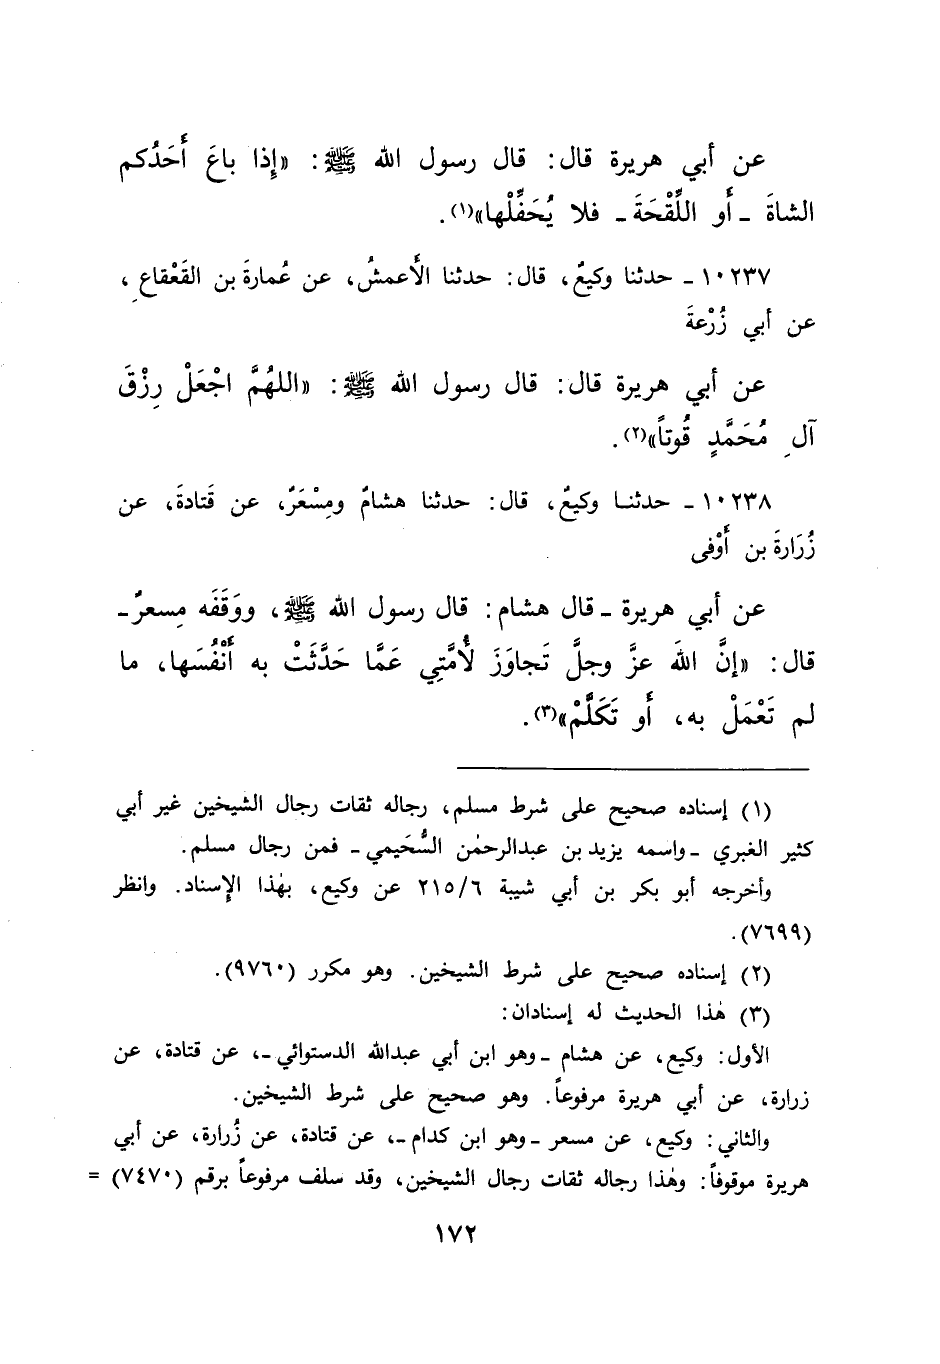 عن أبي هريرة قال: قال رسول الله ﷺ: «إِذا باعَ أَحَدُكم
الشاةَ ـ أَو اللِّقْحَةَ ـ فلا يُحَفِّلْها»(١).
١٠٢٣٧ ـ حدثنا وكيعٌ، قال: حدثنا الأَعمشُ، عن عُمارةَ بن القَعْقاعِ،
عن أبي زُرْعةَ
عن أبي هريرة قال: قال رسول الله ﷺ: «اللهُمَّ اجْعَلْ رِزْقَ
آلِ مُحَمَّدٍ قُوتاً»(٢).
١٠٢٣٨ ـ حدثنـا وكيعٌ، قال: حدثنا هشامٌ ومِسْعَرٌ، عن قَتادةَ، عن
زُرَارةَ بن أَوْفى
عن أبي هريرة ـ قال هشام: قال رسول الله ﷺ، ووَقَفَه مِسعرٌ ـ
قال: «إنَّ اللهَ عزَّ وجلَّ تَجاوَزَ لُأمَّتِي عَمَّا حَدَّثَتْ به أَنْفُسَها، ما
لم تَعْمَلْ به، أَو تَكَلَّمْ»(٣).
(١) إسناده صحيح على شرط مسلم، رجاله ثقات رجال الشيخين غير أبي
كثير الغبري ـ واسمه يزيد بن عبدالرحمٰن السُّحَيمي ـ فمن رجال مسلم.
وأخرجه أبو بكر بن أبي شيبة ٢١٥/٦ عن وكيع، بهٰذا الإسناد. وانظر
(٧٦٩٩).
(٢) إسناده صحيح على شرط الشيخين. وهو مكرر (٩٧٦٠).
(٣) هٰذا الحديث له إسنادان:
الأول: وكيع، عن هشام ـ وهو ابن أبي عبدالله الدستوائي ـ، عن قتادة، عن
زرارة، عن أبي هريرة مرفوعاً. وهو صحيح على شرط الشيخين.
والثاني: وكيع، عن مسعر ـ وهو ابن كدام ـ، عن قتادة، عن زُرارة، عن أبي
هريرة موقوفاً: وهٰذا رجاله ثقات رجال الشيخين، وقد سلف مرفوعاً برقم (٧٤٧٠) =
١٧٢